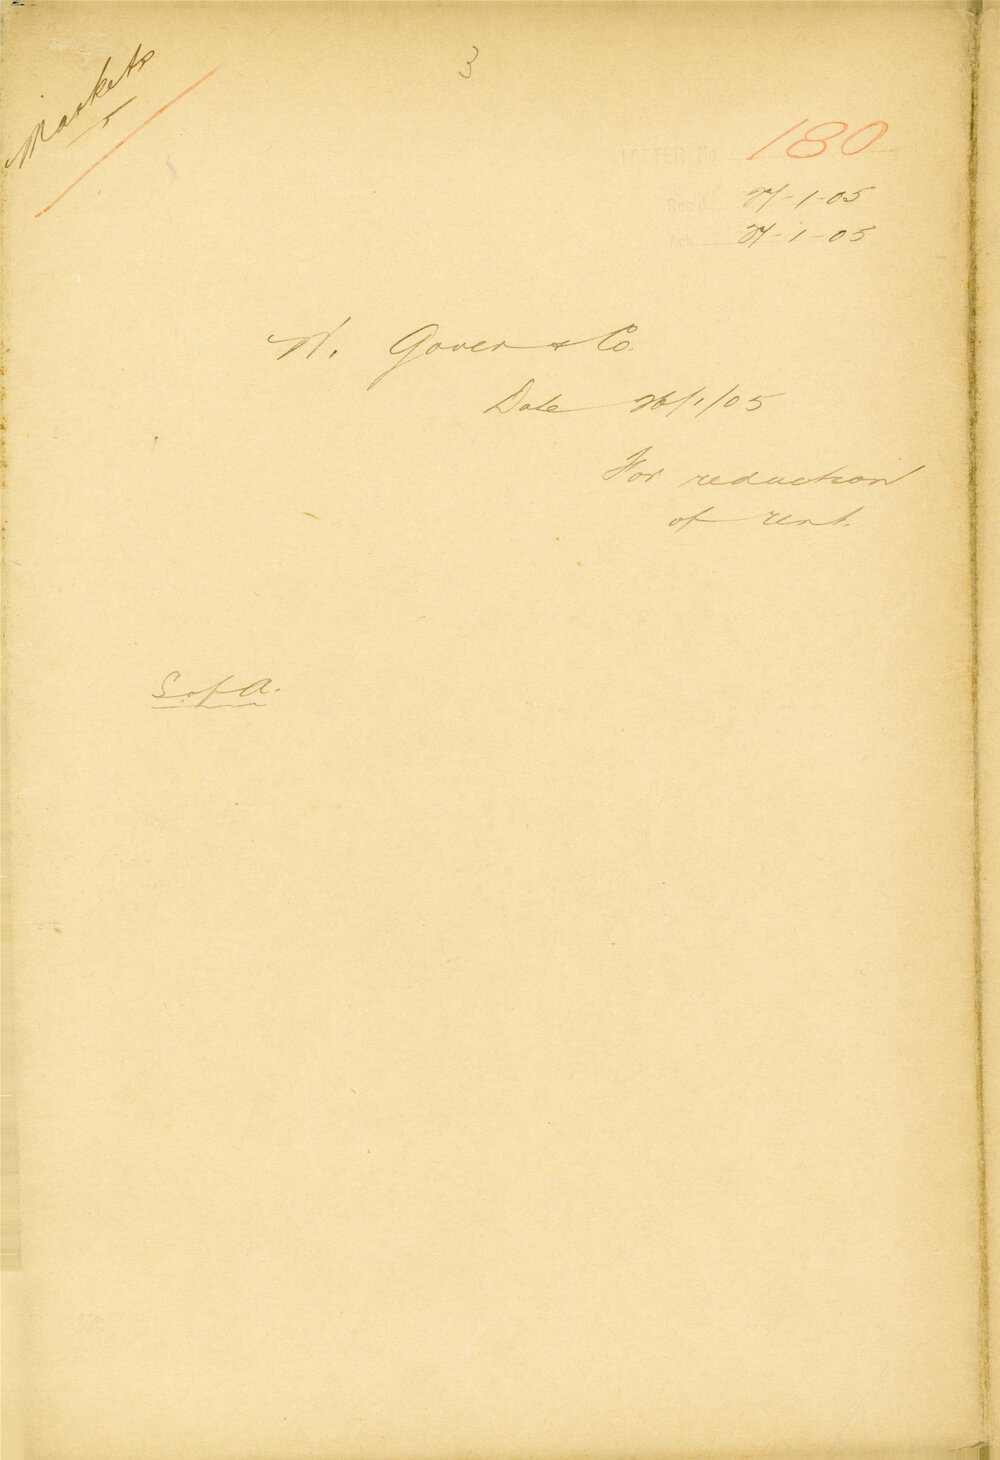 Markets
3
LETTER No. 180
Rec'd 27-1-05
Ack. 27-1-05
W. Gover & Co.
Date 26/1/05
For reduction
of rent.
S. of A.